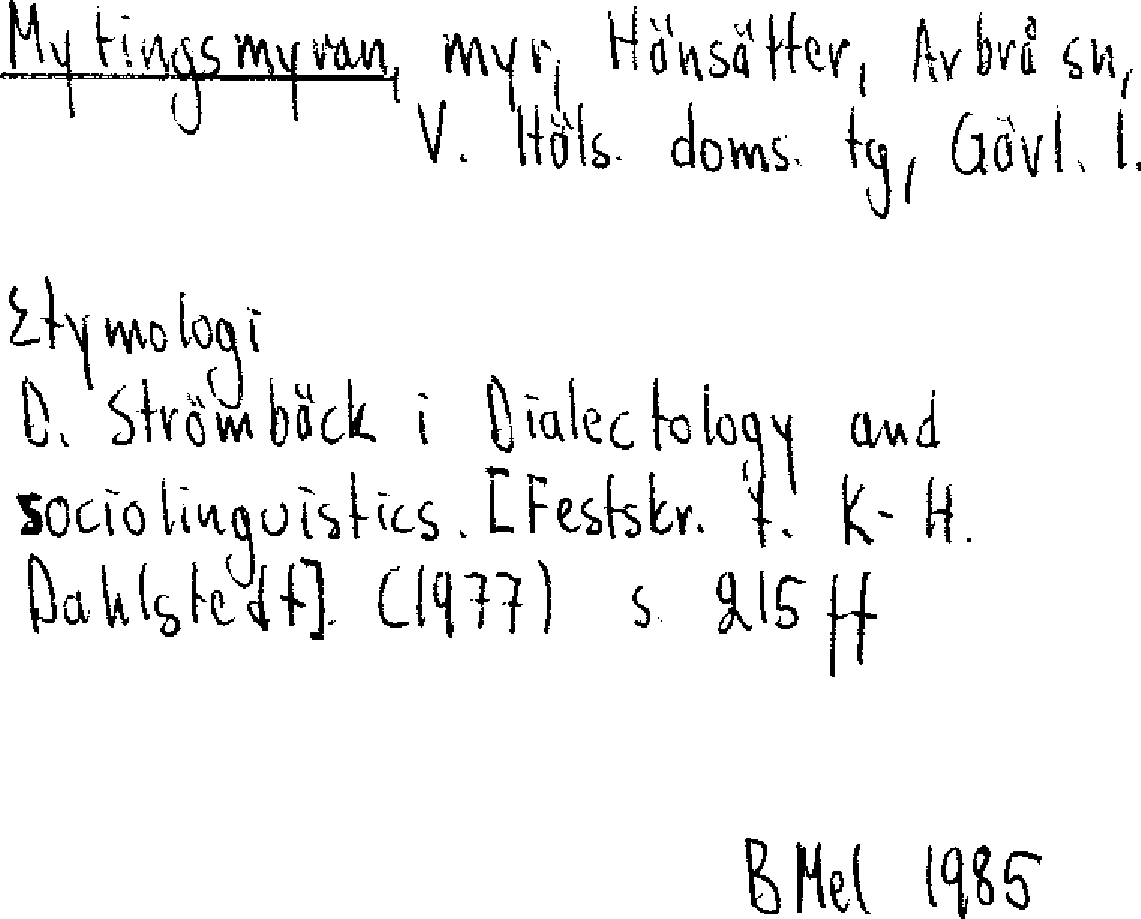 Mytingsmyran, myr, Hänsätter, Arbrå sn,
V. Häls. doms. tg, Gävl. l.
Etymologi
D. Strömbäck i Dialectology and
sociolinguistics. [Festskr. t. K-H.
Dahlstedt]. (1977) s. 215 ff
B Mel 1985